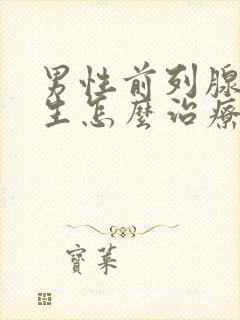 男性前列腺
生怎麼治療
寶萊